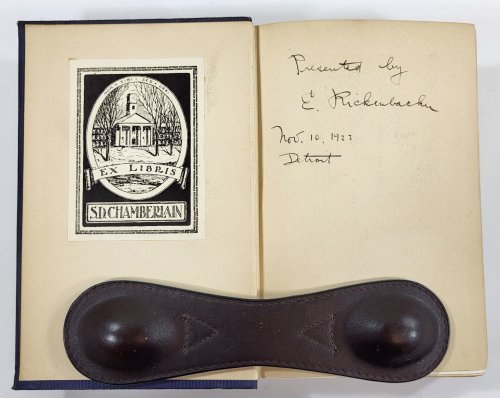 EX LIBRIS
S.D. CHAMBERLAIN
Presented by
E. Rickenbacker
Nov. 10, 1923
Detroit